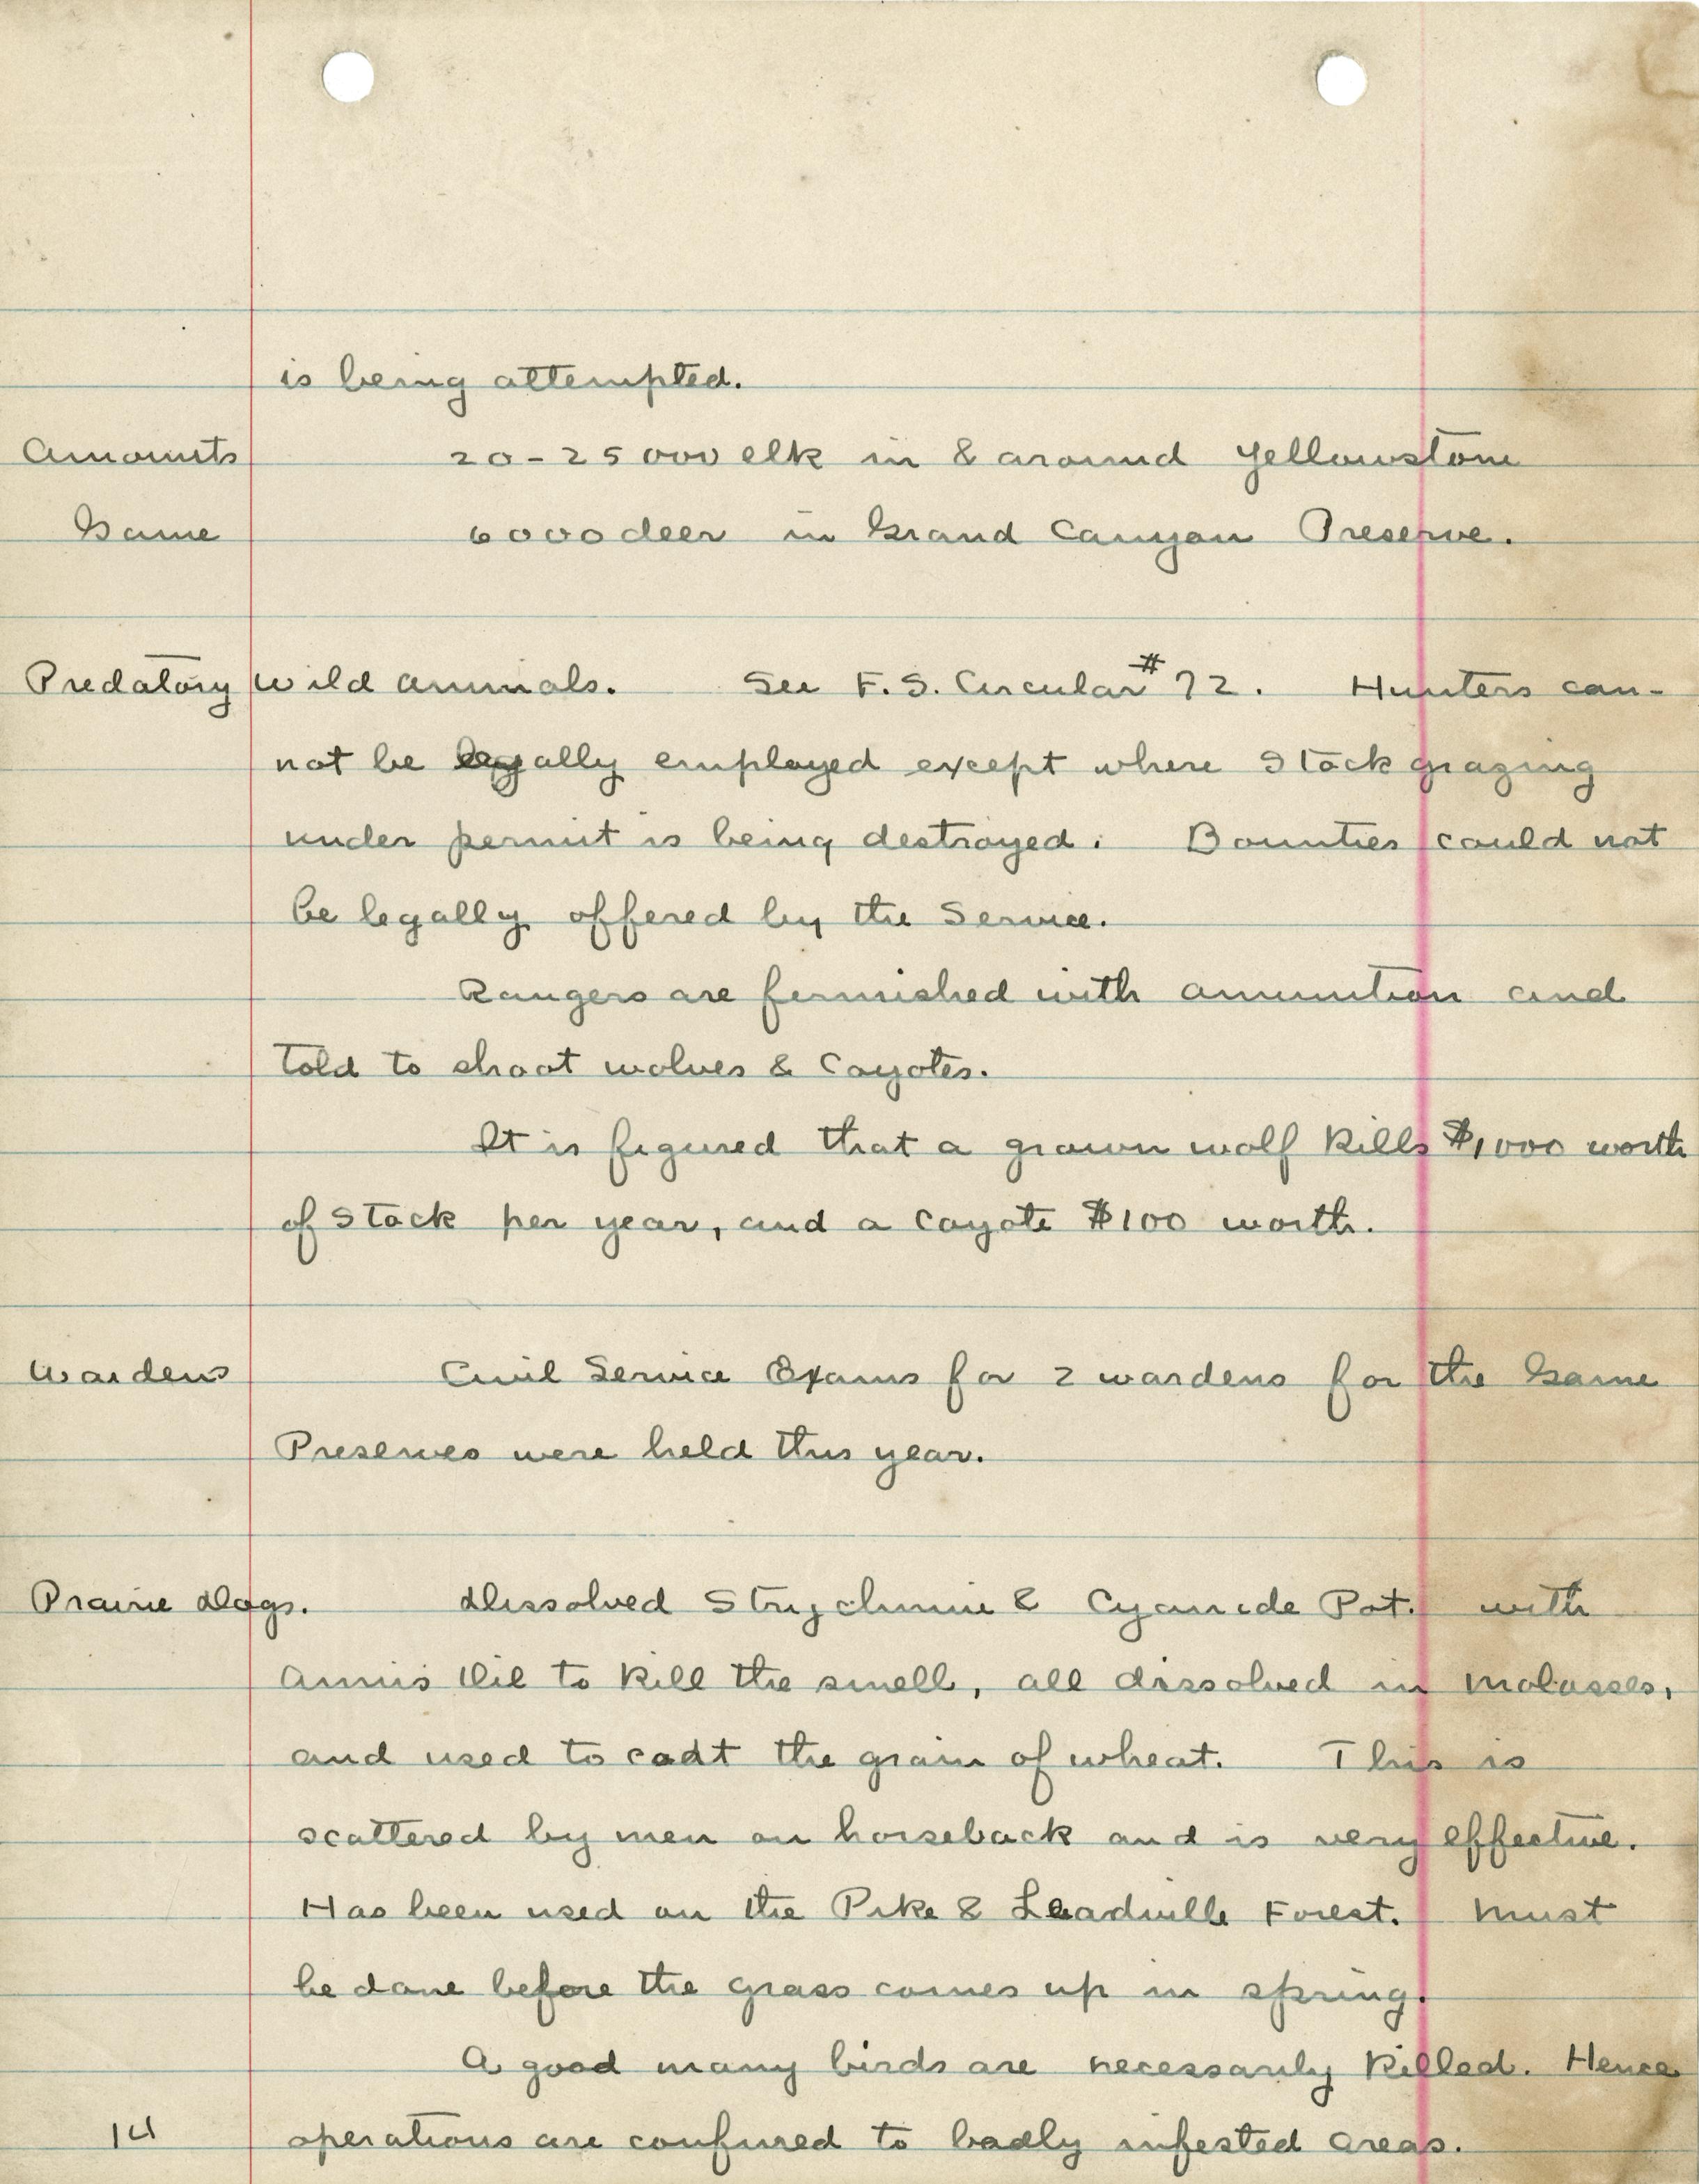 is being attempted.
Amounts 20-25000 elk in & around Yellowstone
Game 6000 deer in Grand Canyon Preserve.
Predatory wild animals. See F.S. Circular #72. Hunters can-
not be legally employed except where stock grazing
under permit is being destroyed. Bounties could not
be legally offered by the Service.
Rangers are furnished with ammunition and
told to shoot wolves & Coyotes.
It is figured that a grown wolf kills $1000 worth
of stock per year, and a coyote $100 worth.
Wardens Civil Service Exams for 2 wardens for the Game
Preserves were held this year.
Prairie Dogs. Dissolved Strychnine & Cyanide Pot. with
Annis Oil to kill the smell, all dissolved in molasses,
and used to coat the grain of wheat. This is
scattered by men on horseback and is very effective.
Has been used on the Pike & Leadville Forest. Must
be done before the grass comes up in spring.
A good many birds are necessarily killed. Hence
14 operations are confined to badly infested areas.